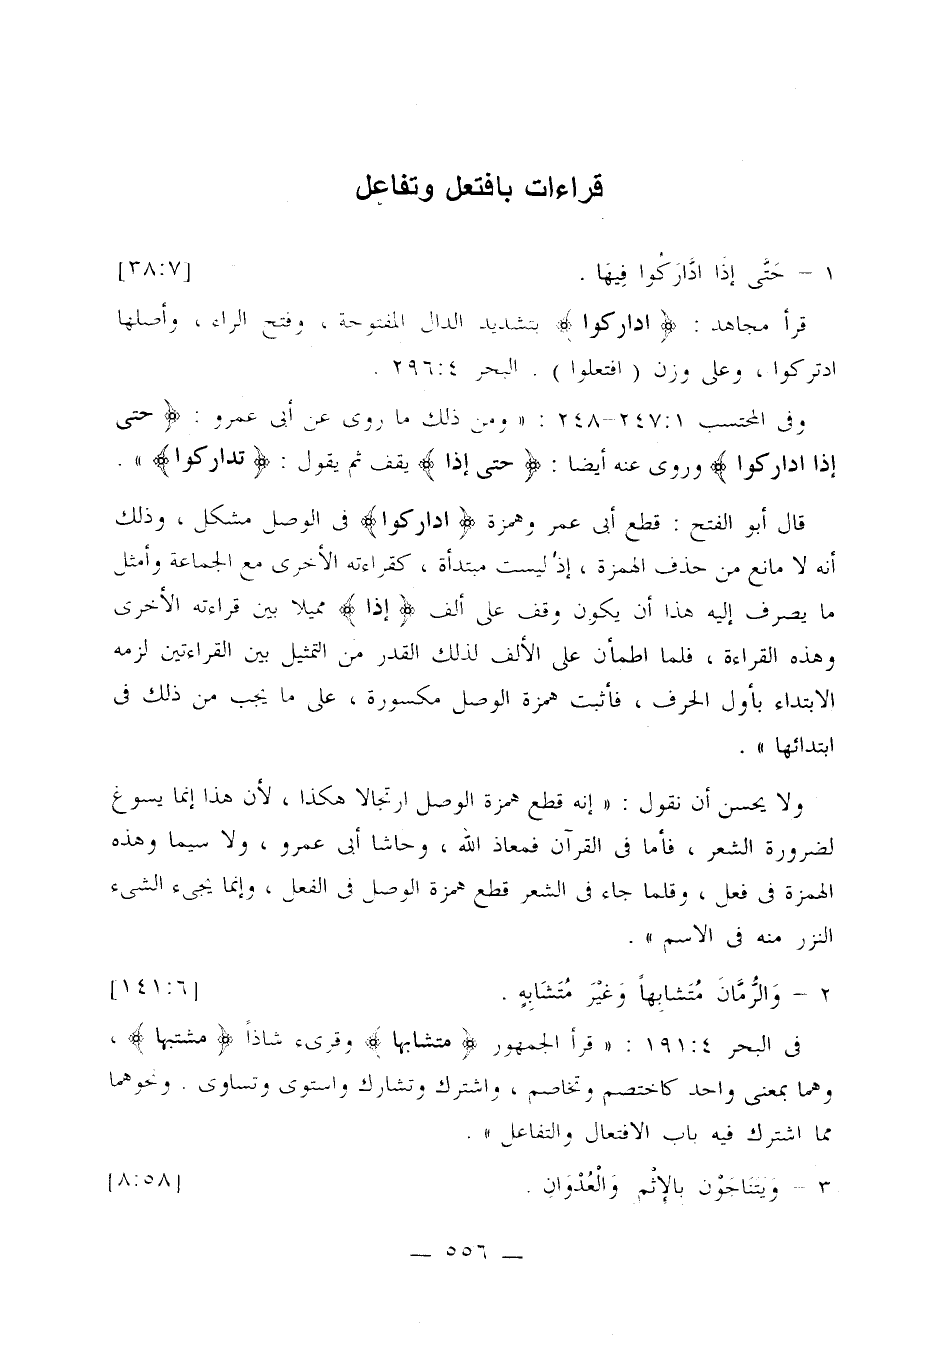 قراءات بافتعل وتفاعل
١ – حَتَّى إِذَا ادَّارَكُوا فِيهَا . [٣٨:٧]
قرأ مجاهد : ﴿ اداركوا ﴾ بتشديد الدال المفتوحة ، وفتح الراء ، وأصلها
ادتركوا ، وعلى وزن ( افتعلوا ) . البحر ٢٩٦:٤ .
وفى المحتسب ٢٤٧:١–٢٤٨ : « ومن ذلك ما روى عن أبى عمرو : ﴿ حتى
إذا اداركوا ﴾ وروى عنه أيضا : ﴿ حتى إذا ﴾ يقف ثم يقول : ﴿ تداركوا ﴾ » .
قال أبو الفتح : قطع أبى عمر وهمزة ﴿ اداركوا ﴾ فى الوصل مشكل ، وذلك
أنه لا مانع من حذف الهمزة ، إذ ليست مبتدأة ، كقراءته الأخرى مع الجماعة وأمثل
ما يصرف إليه هذا أن يكون وقف على ألف ﴿ إذا ﴾ مميلا بين قراءته الأخرى
وهذه القراءة ، فلما اطمأن على الألف لذلك القدر من التمثيل بين القراءتين لزمه
الابتداء بأول الحرف ، فأثبت همزة الوصل مكسورة ، على ما يجب من ذلك فى
ابتدائها » .
ولا يحسن أن نقول : « إنه قطع همزة الوصل ارتجالا هكذا ، لأن هذا إنما يسوغ
لضرورة الشعر ، فأما فى القرآن فمعاذ الله ، وحاشا أبى عمرو ، ولا سيما وهذه
الهمزة فى فعل ، وقلما جاء فى الشعر قطع همزة الوصل فى الفعل ، وإنما يجىء الشىء
النزر منه فى الاسم » .
٢ – وَالرُّمَّانَ مُتَشَابِهاً وَغَيْرَ مُتَشَابِهٍ . [١٤١:٦]
فى البحر ١٩١:٤ : « قرأ الجمهور ﴿ متشابها ﴾ وقرىء شاذاً ﴿ مشتبها ﴾ ،
وهما بمعنى واحد كاختصم وتخاصم ، واشترك وتشارك واستوى وتساوى . ونحوهما
مما اشترك فيه باب الافتعال والتفاعل » .
٣ – وَيَتَنَاجَوْن بالإِثْم وَالْعُدْوَانِ . [٨:٥٨]
— ٥٥٦ —